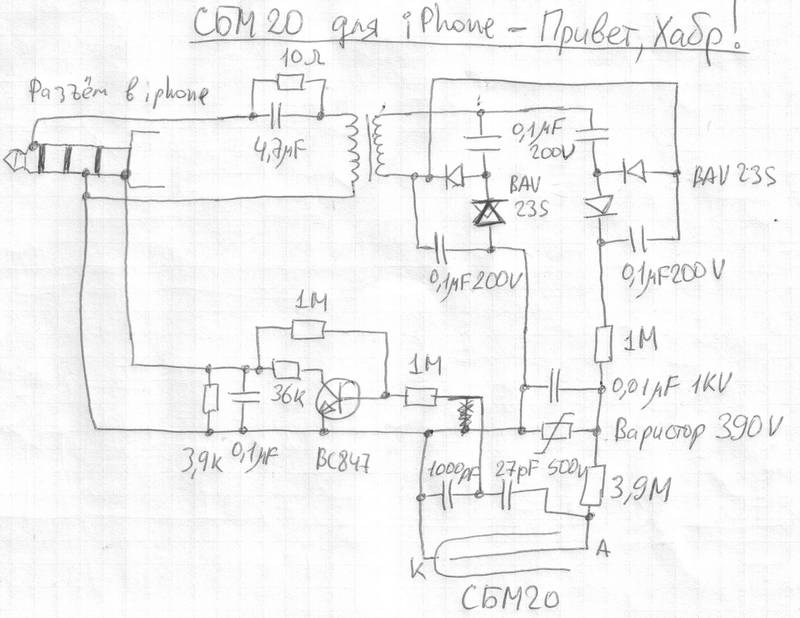 СБМ20 для iPhone – Привет, Хабр!
10Ω
Разъём в iphone
4,7μF
0,1μF
200V
BAV
23S
BAV 23S
0,1μF200V
0,1μF200V
1M
1M
1M
36к
0,01μF 1KV
Варистор 390V
3,9к
0,1μF
BC847
1000pF
27pF 500V
3,9M
К
А
СБМ20